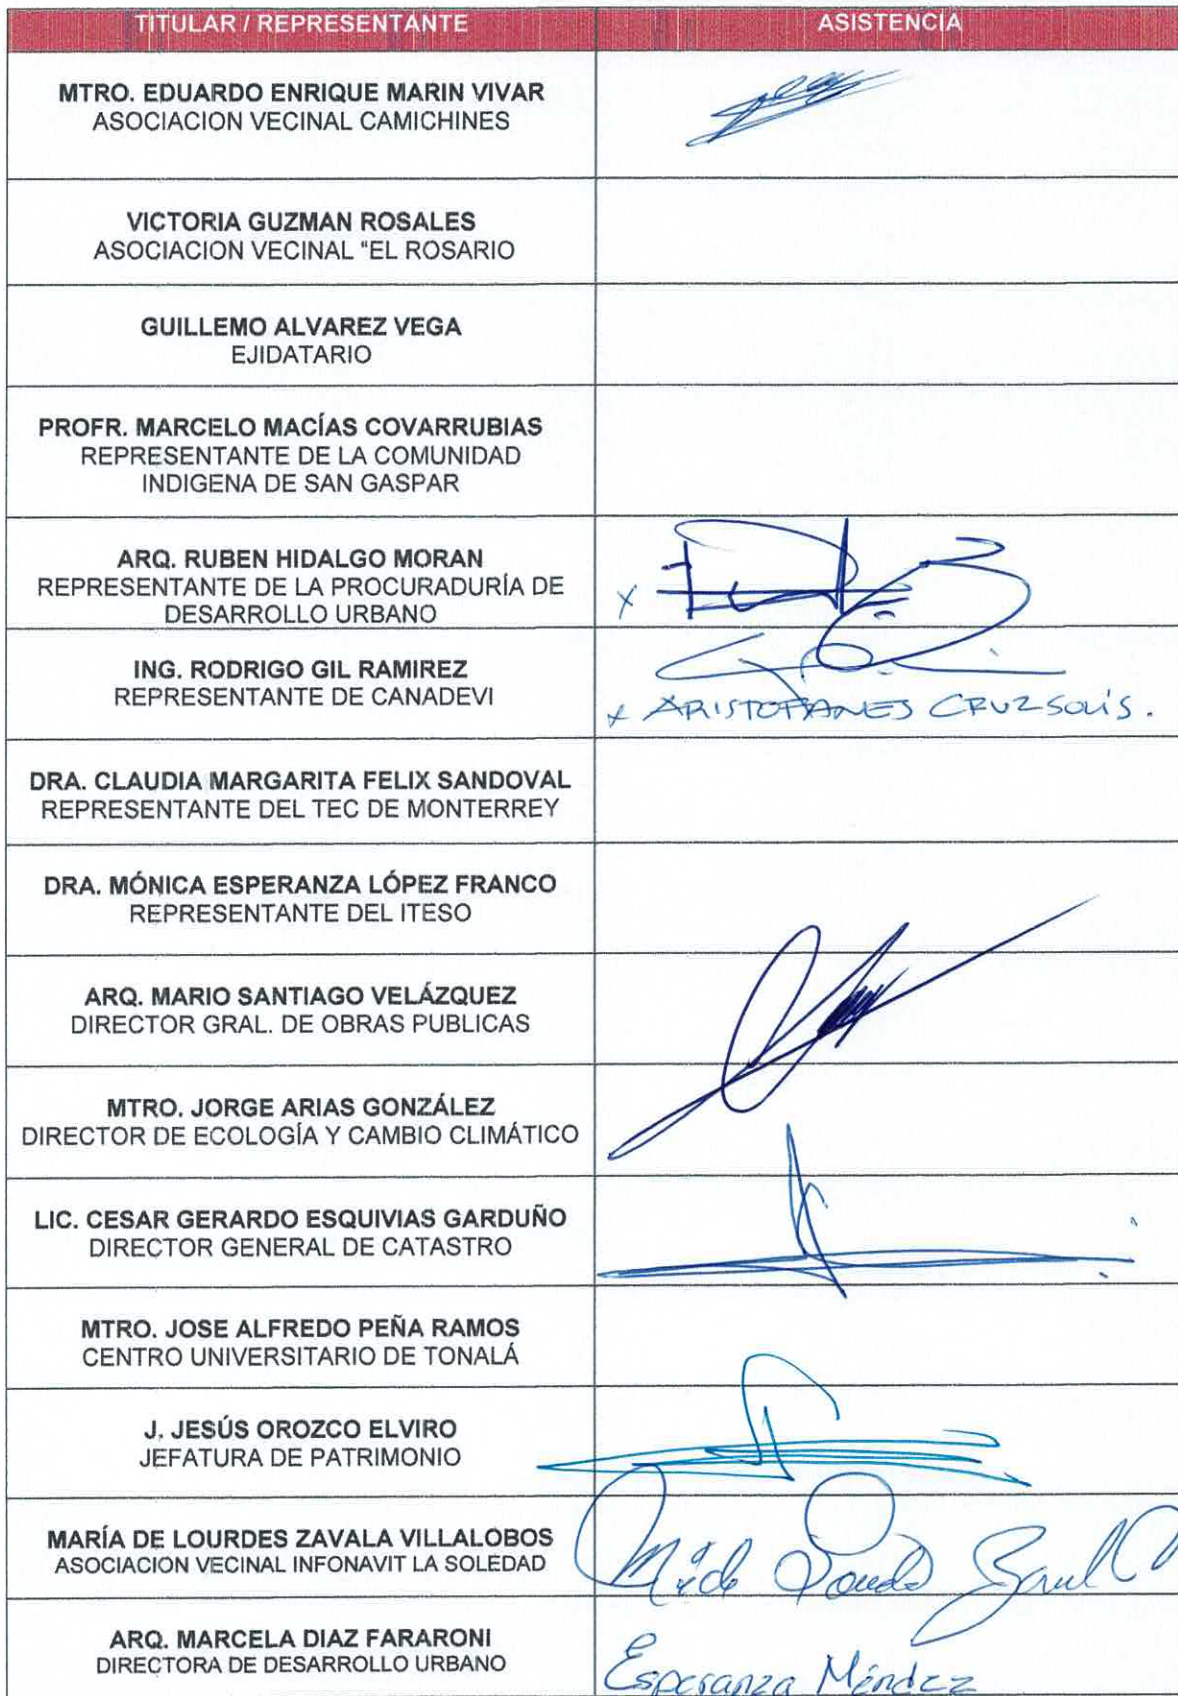 TITULAR / REPRESENTANTE
ASISTENCIA
MTRO. EDUARDO ENRIQUE MARIN VIVAR
ASOCIACION VECINAL CAMICHINES
VICTORIA GUZMAN ROSALES
ASOCIACION VECINAL "EL ROSARIO
GUILLEMO ALVAREZ VEGA
EJIDATARIO
PROFR. MARCELO MACÍAS COVARRUBIAS
REPRESENTANTE DE LA COMUNIDAD
INDIGENA DE SAN GASPAR
ARQ. RUBEN HIDALGO MORAN
REPRESENTANTE DE LA PROCURADURÍA DE
DESARROLLO URBANO
x
ING. RODRIGO GIL RAMIREZ
REPRESENTANTE DE CANADEVI
x ARISTOFANES CRUZ SOLÍS.
DRA. CLAUDIA MARGARITA FELIX SANDOVAL
REPRESENTANTE DEL TEC DE MONTERREY
DRA. MÓNICA ESPERANZA LÓPEZ FRANCO
REPRESENTANTE DEL ITESO
ARQ. MARIO SANTIAGO VELÁZQUEZ
DIRECTOR GRAL. DE OBRAS PUBLICAS
MTRO. JORGE ARIAS GONZÁLEZ
DIRECTOR DE ECOLOGÍA Y CAMBIO CLIMÁTICO
LIC. CESAR GERARDO ESQUIVIAS GARDUÑO
DIRECTOR GENERAL DE CATASTRO
MTRO. JOSE ALFREDO PEÑA RAMOS
CENTRO UNIVERSITARIO DE TONALÁ
J. JESÚS OROZCO ELVIRO
JEFATURA DE PATRIMONIO
MARÍA DE LOURDES ZAVALA VILLALOBOS
ASOCIACION VECINAL INFONAVIT LA SOLEDAD
ARQ. MARCELA DIAZ FARARONI
DIRECTORA DE DESARROLLO URBANO
Esperanza Méndez